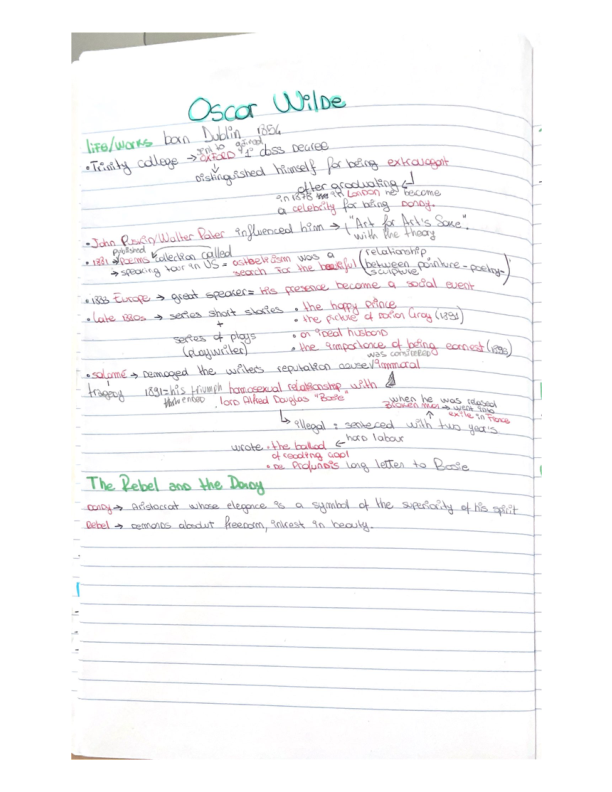 Oscar Wilde
life/works born Dublin 1854
sent to gained
• Trinity college → OXFORD 1° class Degree
Distinguished himself for being extravagant
after graduating
in 1878 in London he become
a celebrity for being Dandy.
• John Ruskin/Walter Pater influenced him → "Art for Art's Sake".
with the theory
published
• 1881 → Poems collection called
relationship
→ speaking tour in US = aestheticism was a
search for the beautiful (between painture - poetry
sculpture)
• 1883 Europe → great speaker = His presence become a social event
• Late 1880s → series short stories • the happy prince
+ • the picture of Dorian Gray (1891)
series of plays • an ideal husband
(playwriter) • the importance of being earnest (1895)
was considered
• Salomé → Damaged the writers reputation cause immoral
tragedy 1891 = his triumph homosexual relationship with
lord Alfred Douglas "Bosie"
when he was relased
broken man → went into
exile in France
illegal : senteced with two year's
hard labour
wrote • the ballad
of reading Gaol
• De Profundis long letter to Bosie
The Rebel and the Dandy
Dandy → Aristocrat whose elegance is a symbol of the superiority of his spirit
Rebel → Demands absolut freedom, intrest in beauty.